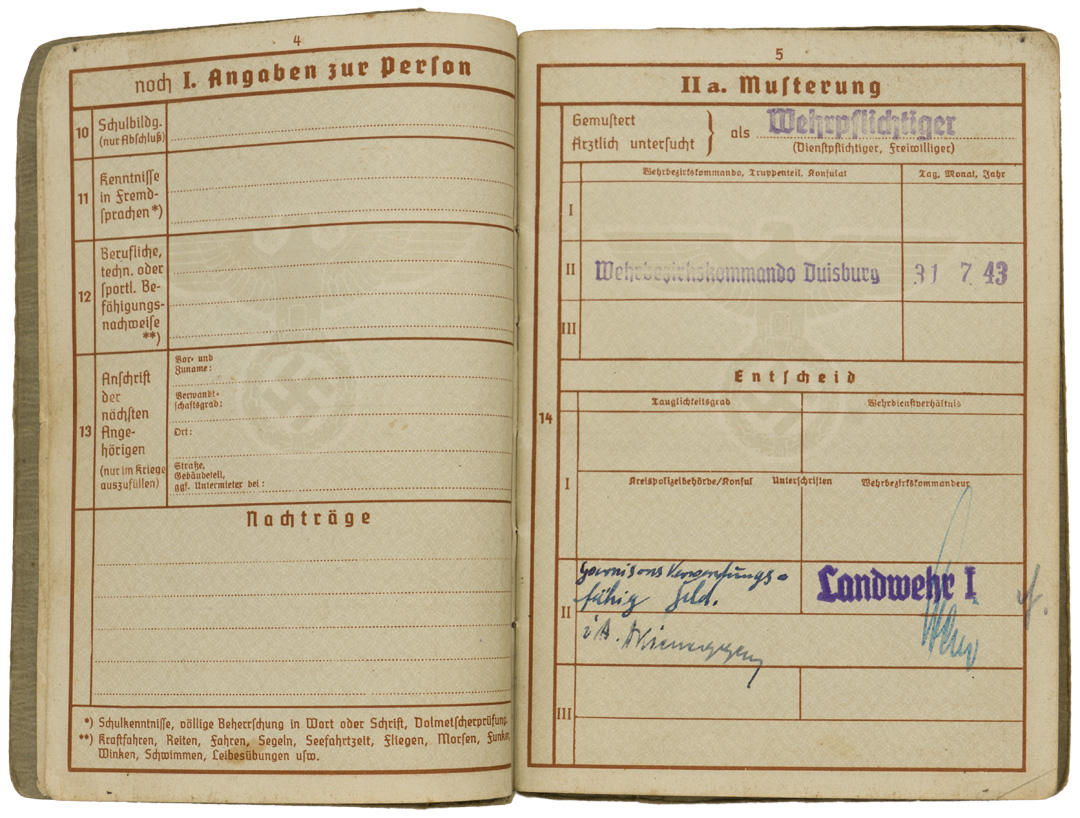 4
noch I. Angaben zur Person
10 Schulbildg.
(nur Abschluß)
11 Kenntnisse
in Fremd-
sprachen*)
12 Berufliche,
techn. oder
sportl. Be-
fähigungs-
nachweise
**)
13 Anschrift
der
nächsten
Ange-
hörigen
(nur im Kriege
auszufüllen)
Vor- und
Zuname:
Verwandt-
schaftsgrad:
Ort:
Straße,
Gebäudeteil,
ggf. Untermieter bei:
Nachträge
*) Schulkenntnisse, völlige Beherrschung in Wort oder Schrift, Dolmetscherprüfung.
**) Kraftfahren, Reiten, Fahren, Segeln, Seefahrtzeit, Fliegen, Morsen, Funken,
Winken, Schwimmen, Leibesübungen usw.
5
II a. Musterung
Gemustert
Ärztlich untersucht
als Wehrpflichtiger
(Dienstpflichtiger, Freiwilliger)
Wehrbezirkskommando, Truppenteil, Konsulat Tag, Monat, Jahr
I
II Wehrbezirkskommando Duisburg 31 7. 43
III
Entscheid
14
Tauglichkeitsgrad Wehrdienstverhältnis
I
Kreispolizeibehörde/Konsul Unterschriften Wehrbezirkskommandeur
II
Garnisonsverwendungs-
fähig Feld.
Landwehr I
i.A.
III